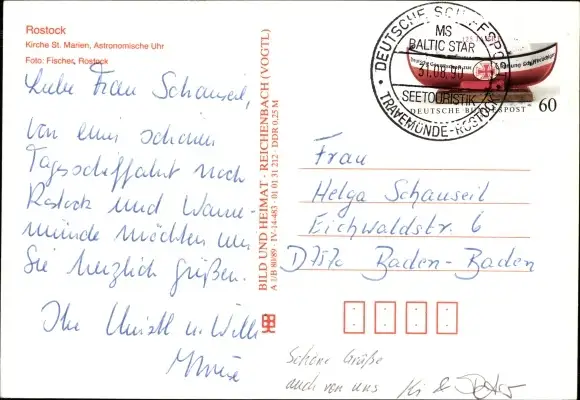 Rostock
Kirche St. Marien, Astronomische Uhr
Foto: Fischer, Rostock
Liebe Frau Schauseil,
von einer schönen
Tagesschiffahrt nach
Rostock und Warne-
münde möchten wir
Sie herzlich grüßen.
Ihre
u. Willi
BILD UND HEIMAT · REICHENBACH (VOGTL)
A 1/B 80/89 · IV-14-483 · 01 01 31 212 · DDR 0,25 M
DEUTSCHE SCHIFFSPOST
MS
BALTIC STAR
31.08.90
SEETOURISTIK
TRAVEMÜNDE-ROSTOCK
60
DEUTSCHE BUNDESPOST
Frau
Helga Schauseil
Eichwaldstr. 6
D7570 Baden-Baden
Schöne Grüße
auch von uns